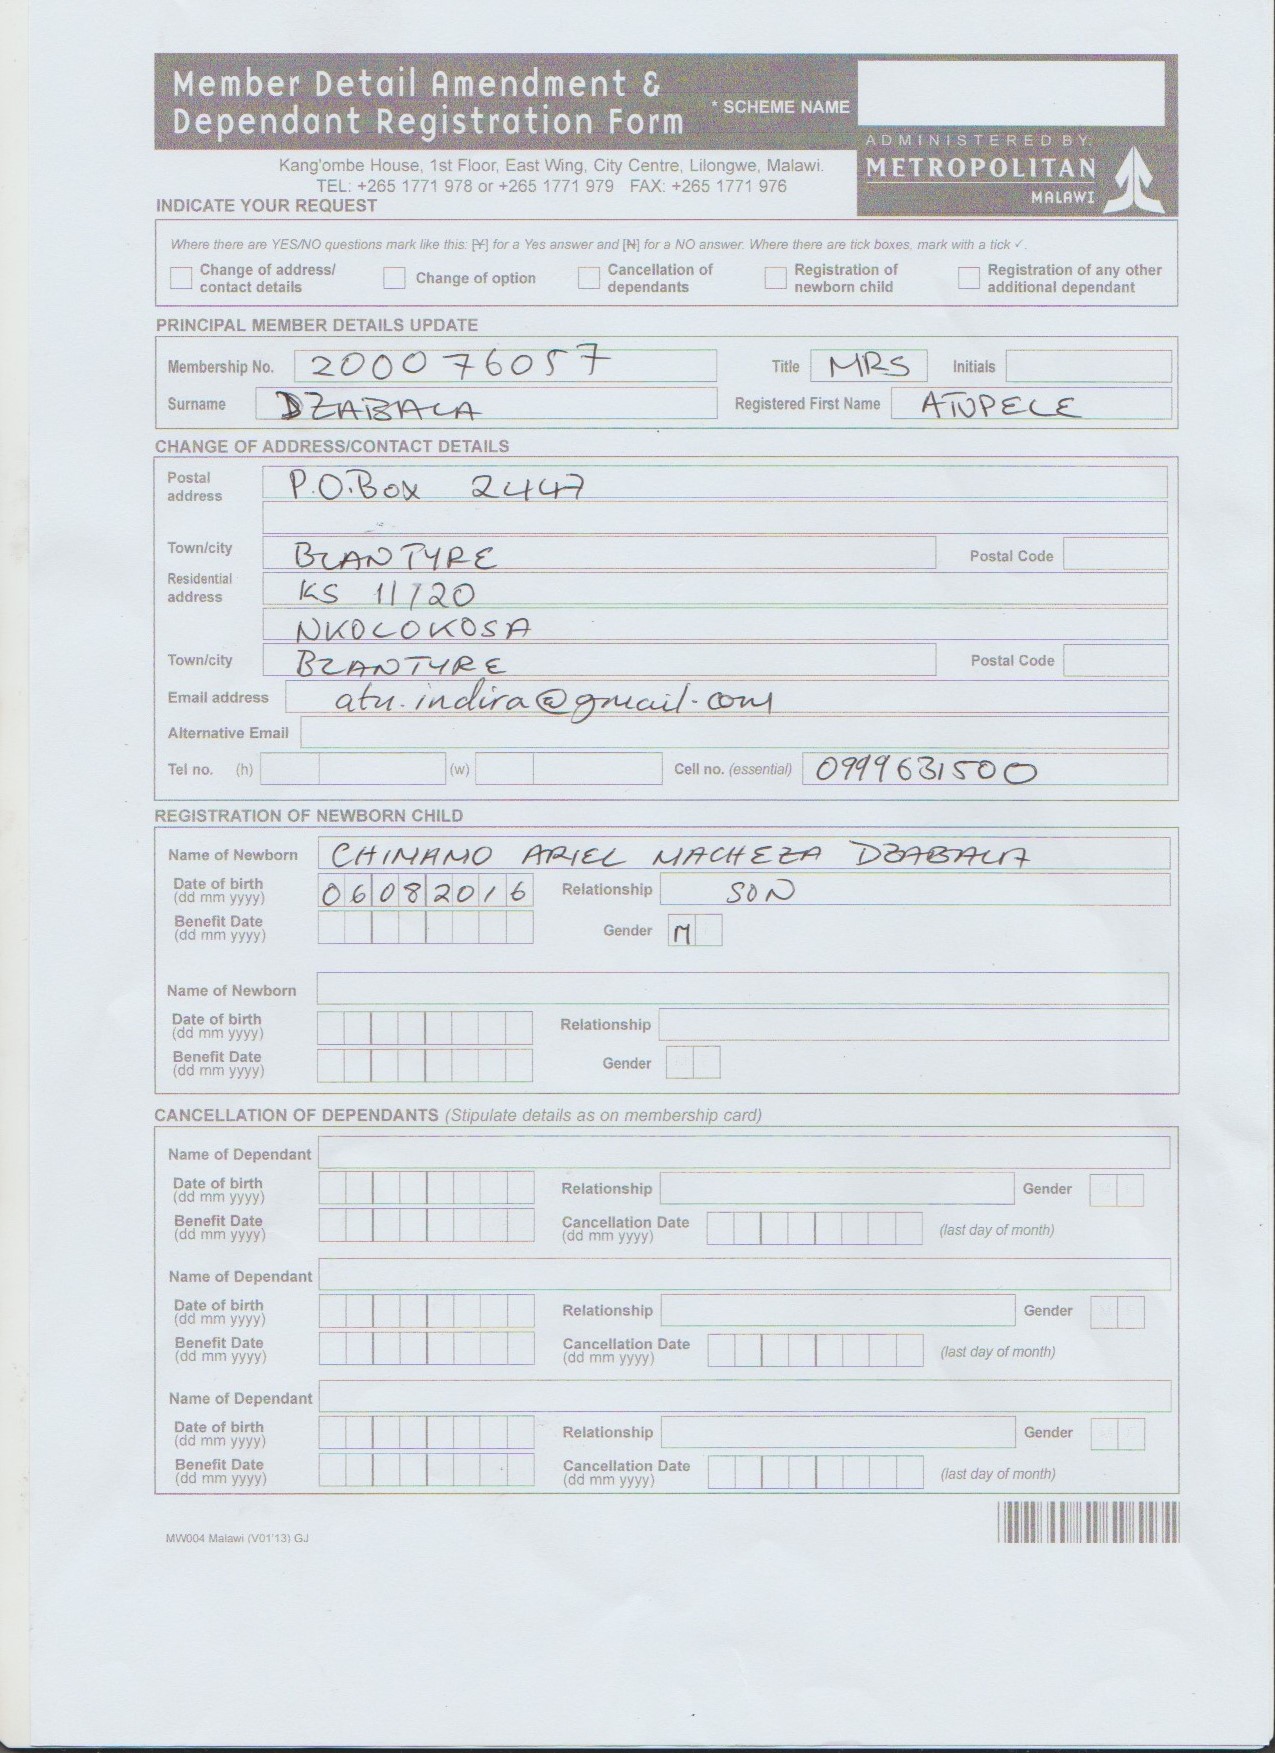 Member Detail Amendment &
Dependant Registration Form
* SCHEME NAME
ADMINISTERED BY:
METROPOLITAN
MALAWI
Kang'ombe House, 1st Floor, East Wing, City Centre, Lilongwe, Malawi.
TEL: +265 1771 978 or +265 1771 979 FAX: +265 1771 976
INDICATE YOUR REQUEST
Where there are YES/NO questions mark like this: [Y] for a Yes answer and [N] for a NO answer. Where there are tick boxes, mark with a tick ✓.
Change of address/ contact details
Change of option
Cancellation of dependants
Registration of newborn child
Registration of any other additional dependant
PRINCIPAL MEMBER DETAILS UPDATE
Membership No. 200076057 Title MRS Initials
Surname DZABALA Registered First Name ATUPELE
CHANGE OF ADDRESS/CONTACT DETAILS
Postal address P.O.Box 2447
Town/city BLANTYRE Postal Code
Residential address KS 11/20
NKOLOKOSA
Town/city BLANTYRE Postal Code
Email address atu.indira@gmail.com
Alternative Email
Tel no. (h) (w) Cell no. (essential) 0999631500
REGISTRATION OF NEWBORN CHILD
Name of Newborn CHIMAMO ARIEL MACHEZA DZABALA
Date of birth (dd mm yyyy) 06082016 Relationship SON
Benefit Date (dd mm yyyy) Gender M
Name of Newborn
Date of birth (dd mm yyyy) Relationship
Benefit Date (dd mm yyyy) Gender
CANCELLATION OF DEPENDANTS (Stipulate details as on membership card)
Name of Dependant
Date of birth (dd mm yyyy) Relationship Gender
Benefit Date (dd mm yyyy) Cancellation Date (dd mm yyyy) (last day of month)
Name of Dependant
Date of birth (dd mm yyyy) Relationship Gender
Benefit Date (dd mm yyyy) Cancellation Date (dd mm yyyy) (last day of month)
Name of Dependant
Date of birth (dd mm yyyy) Relationship Gender
Benefit Date (dd mm yyyy) Cancellation Date (dd mm yyyy) (last day of month)
MW004 Malawi (V01'13) GJ